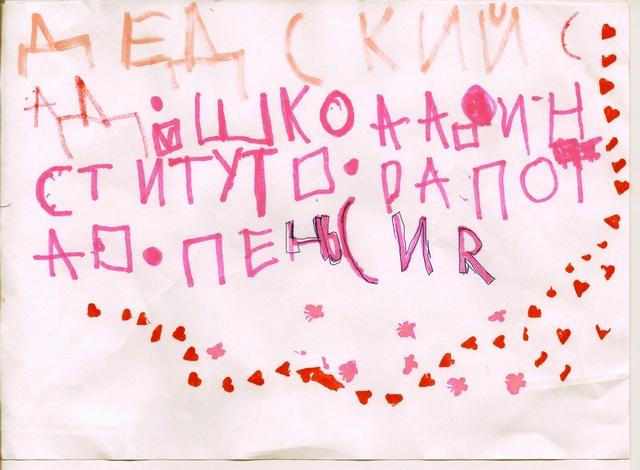 ДЕДСКИЙ С
АД • ШКОАА • ИН
СТИТУТ • РАПОТ
А • ПЕНЬСИR